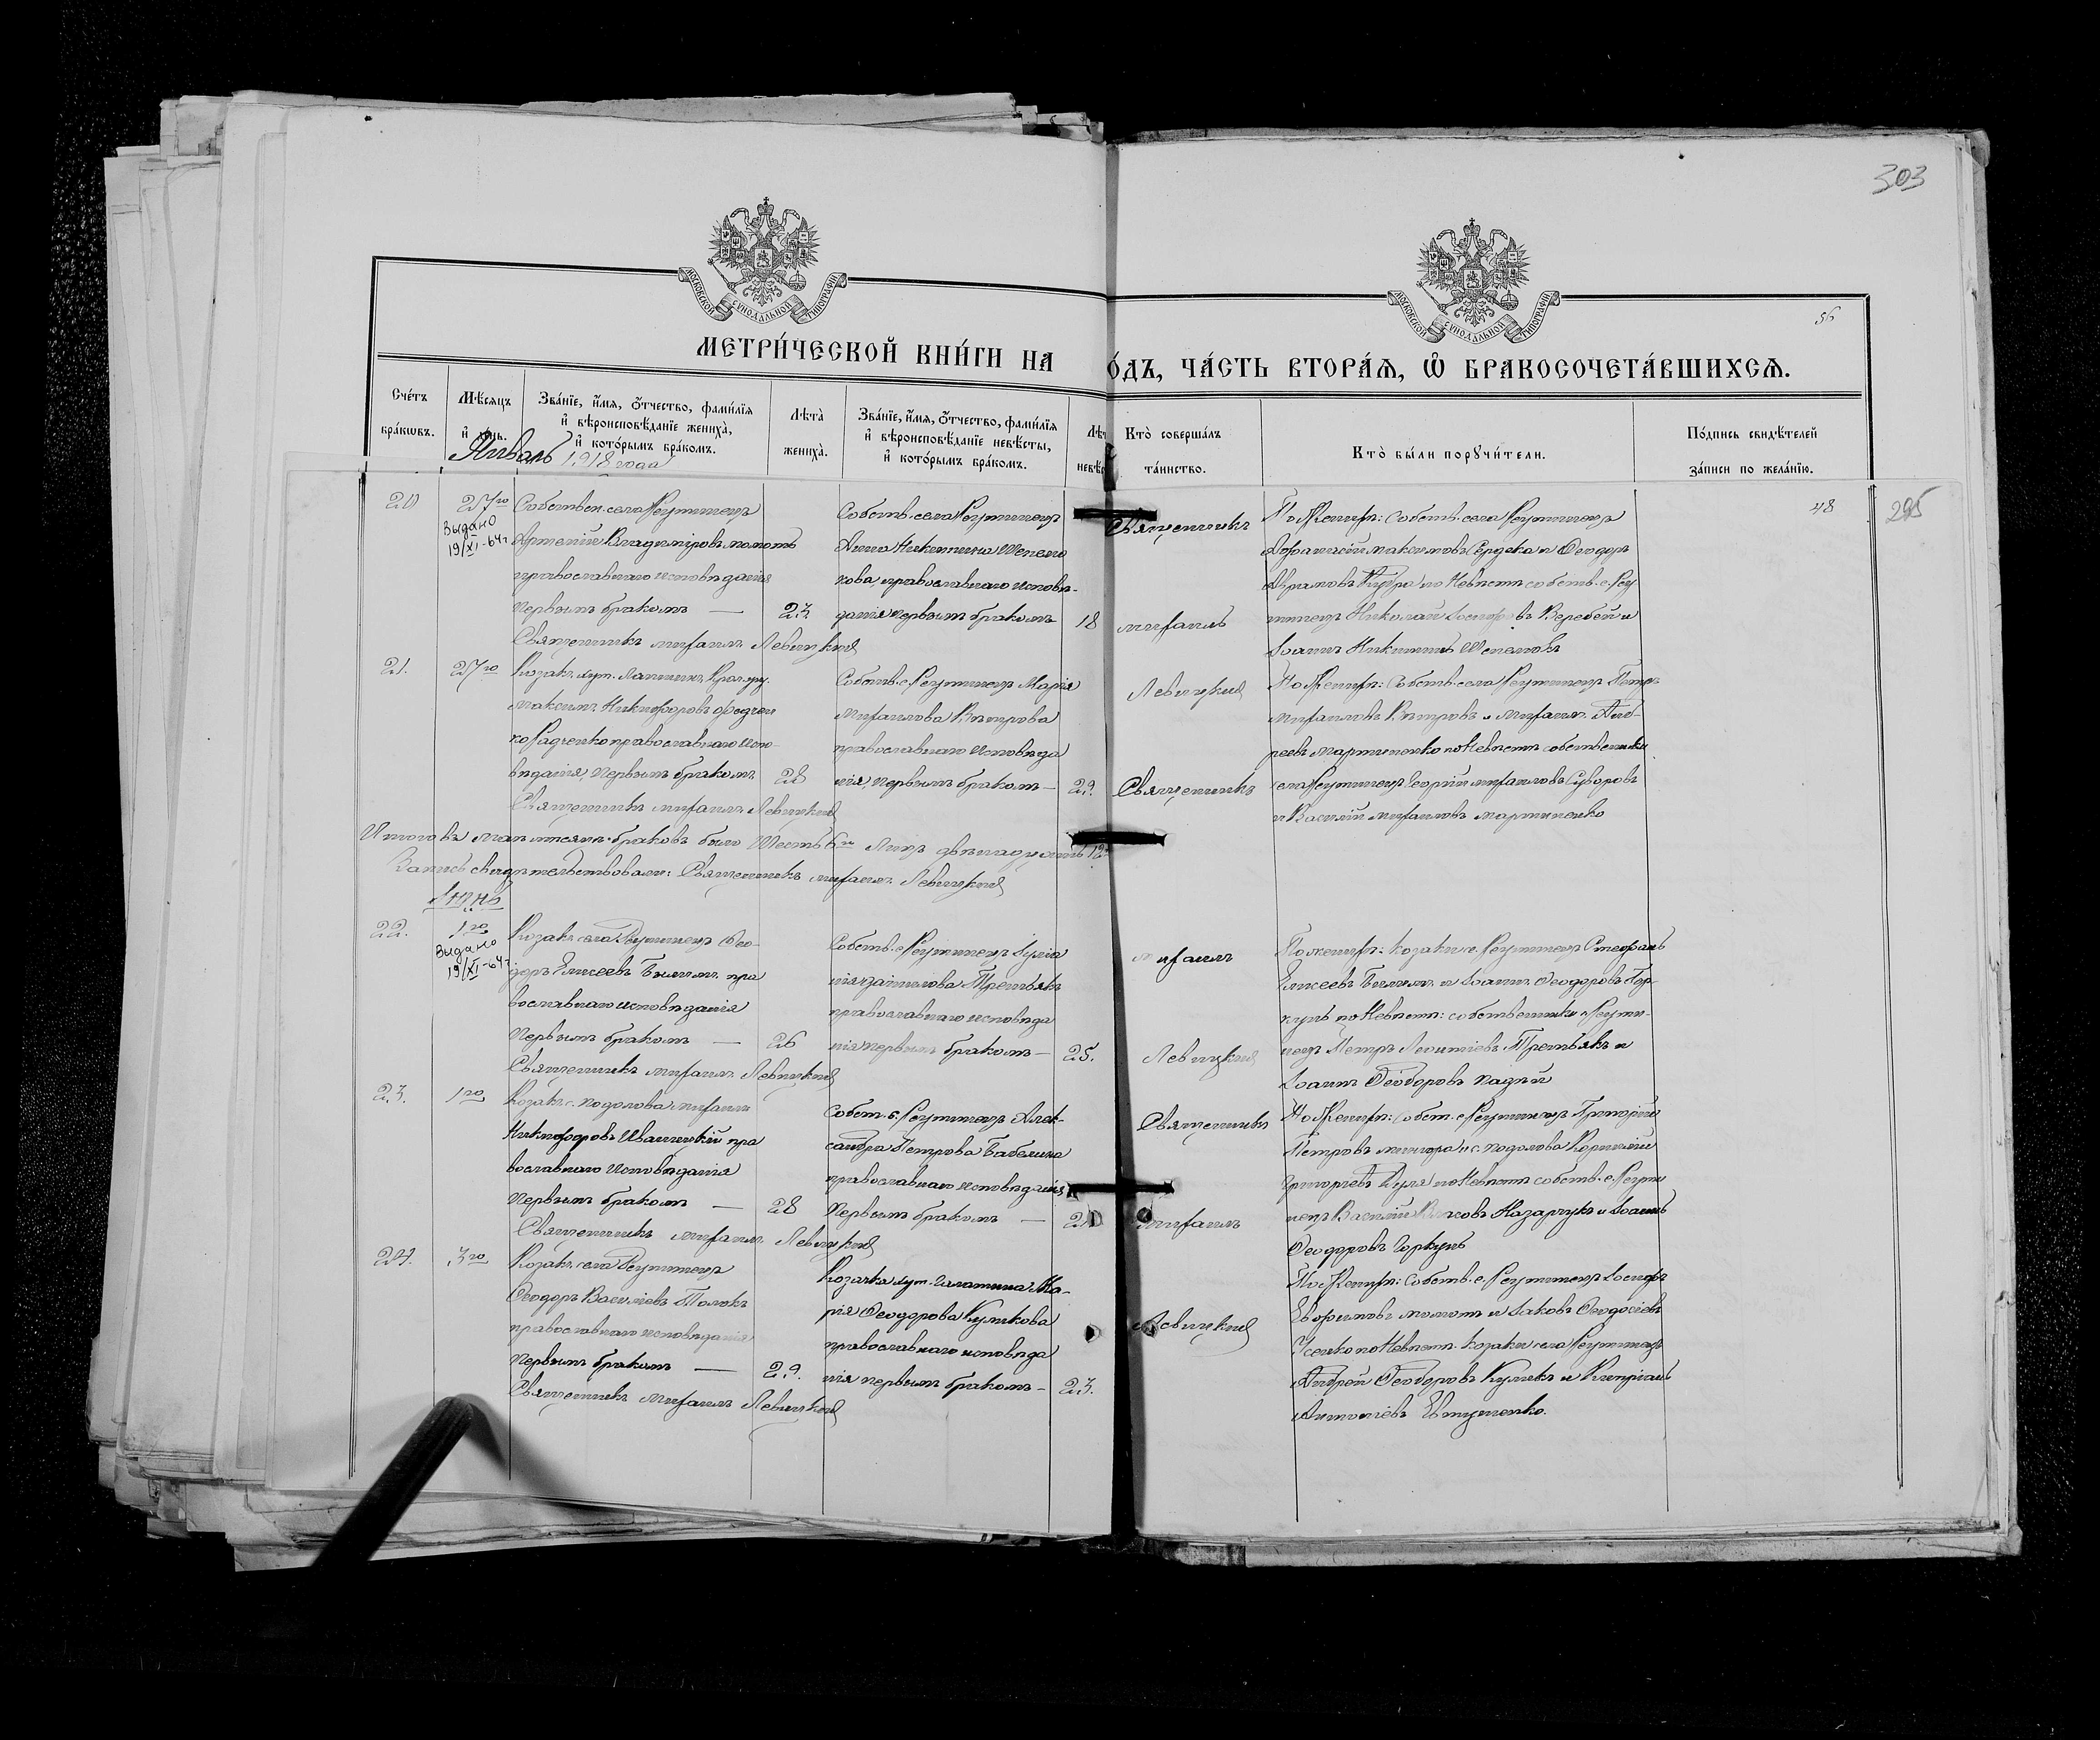 303
МОСКОВСКОЙ СУНОДАЛЬНОЙ ТИПОГРАФІИ
МОСКОВСКОЙ СУНОДАЛЬНОЙ ТИПОГРАФІИ
56
МЕТРИ́ЧЕСКОЙ КНИ́ГИ НА
О́ДЪ, ЧА́СТЬ ВТОРА́Ѧ, Ѽ БРАКОСОЧЕТА́ВШИХСѦ.
Сче́тъ бра́кωвъ.
Мѣ́сяцъ и҆ день.
Зва́нїе, и҆́мя, ѻ҆́тчество, фами́лїя и҆ вѣроисповѣ́данїе жениха̀, и҆ кото́рымъ бра́комъ.
Лѣта̀ жениха̀.
Зва́нїе, и҆́мя, ѻ҆́тчество, фами́лїя и҆ вѣроисповѣ́данїе невѣ́сты, и҆ кото́рымъ бра́комъ.
Кто̀ соверша́лъ та́инство.
Кто̀ бы́ли порꙋчи́тели.
По́дпись свидѣ́телей за́писи по жела́нїю.
Январь 1918 года
48
295
20
27го
Выдано
19/XI-64г
Собствен. села Реутинецъ
Артемій Владиміровъ Момотъ
православнаго исповѣданія
первымъ бракомъ — 23.
Священникъ Михаилъ Левицкій
Собств. села Реутинецъ
Анна Никитина Шепеле
кова православнаго исповѣ-
данія первымъ бракомъ 18
Священникъ
Михаилъ
Левицкій
По Женихѣ: Собств. села Реутинецъ
Афанасій Максимовъ Сердека и Ѳеодоръ
Абрамовъ по Невѣстѣ собств. с. Реу
тинецъ Николай Іосифовъ Веребей и
Іоаннъ Никитинъ
21.
27го
Козакъ хут. Лапшинъ
Максимъ Никифоровъ
Радченко православнаго испо-
вѣданія, первымъ бракомъ 28
Священникъ Михаилъ Левицкій
Собств. с. Реутинецъ Марія
Михаилова Вѣтрова
православнаго исповѣда
нія, первымъ бракомъ — 29.
Священникъ
По Женихѣ: Собств. села Реутинецъ Петръ
Михаиловъ Вѣтровъ и Михаилъ Анд-
реевъ Мартиненко по Невѣстѣ собственники
села Реутинецъ Георгій Михаиловъ Суворовъ
и Василій Михаиловъ Мартиненко
Итого въ маѣ мѣсяцѣ браковъ было шесть 6ть Лицъ двѣнадцать 12
Запись свидѣтельствовали: Священникъ Михаилъ Левицкій
Іюнь
22.
1го
Выдано
19/XI-64г.
Козакъ села Реутинецъ Ѳео-
доръ Елисеевъ Билимъ пра
вославнаго исповѣданія
Первымъ бракомъ — 26
Священникъ Михаилъ Левицкій
Собств. с. Реутинецъ Іуліа
Третьякъ
православнаго исповѣда
нія первымъ бракомъ — 25.
Михаилъ
Левицкій
По женихѣ: козаки с. Реутинецъ Стефанъ
Елисеевъ Билимъ и Іоаннъ Ѳеодоровъ Гор-
кунъ по Невѣстѣ: собственники с. Реути-
нецъ Петръ Леонтіевъ Третьякъ и
Іоаннъ Ѳеодоровъ
23.
1го
Козакъ с. Подолова Михаилъ
Никифоровъ Иваницкій пра
вославнаго исповѣданія
Первымъ бракомъ — 28
Священникъ Михаилъ Левицкій
Собст. с. Реутинецъ Алек-
сандра Петрова Бабелина
православнаго исповѣданія,
Первымъ бракомъ —
Священникъ
Михаилъ
По Женихѣ: Собст. с. Реутинецъ Григорій
Петровъ и с. Подолова Корнилій
Григорьевъ Дуля по Невѣстѣ собств. с. Реути
нецъ Василій Власовъ Назарчукъ и Іоаннъ
Ѳеодоровъ Горкунъ
24.
3го
Козакъ села Реутинецъ
Ѳеодоръ Василіевъ
православнаго исповѣданія
первымъ бракомъ — 29.
Священникъ Михаилъ Левицкій
Козачка хут. Галатина Ма-
рія Ѳеодорова Куликова
православнаго исповѣда
нія первымъ бракомъ — 23.
Левицкій
По Женихѣ: Собств. с. Реутинецъ Іосифъ
Евфимовъ Момотъ и Іаковъ Ѳеодосіевъ
Усенко по Невѣстѣ. Козаки села Реутинецъ
Андрей Ѳеодоровъ Куликъ и Кипріанъ
Антоніевъ Евтушенко.